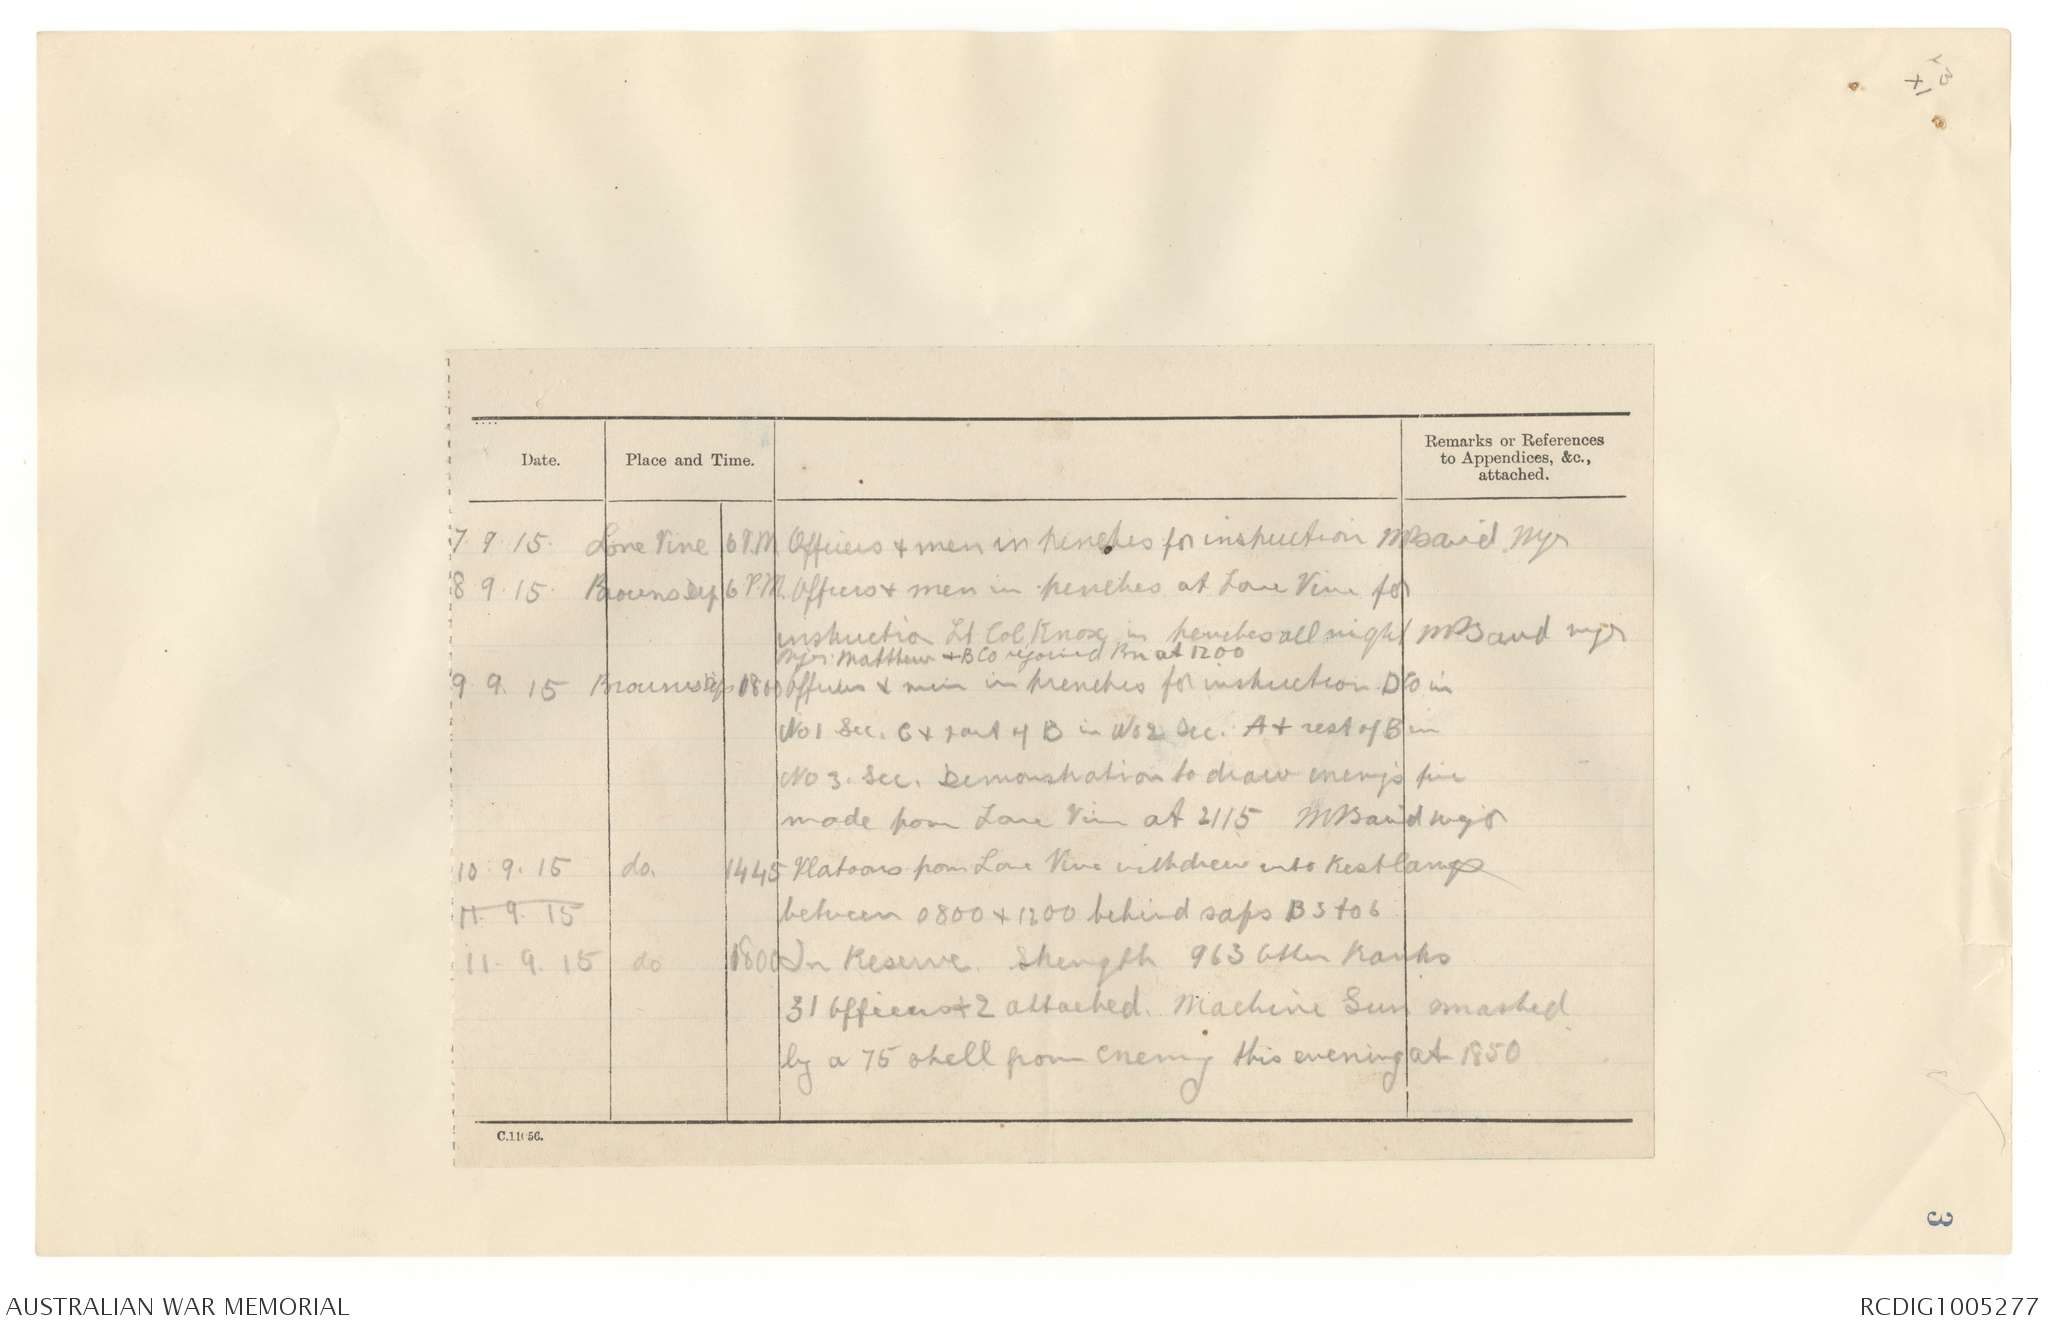 Date.
Place and Time.
Remarks or References
to Appendices, &c.,
attached.
7 9. 15. Lone Pine 6 P.M. Officers & men in trenches for instruction MBaird Mjr
8 9. 15. Browns Dip 6 P.M. Officers & men in trenches at Lone Pine for
instruction Lt Col Knox in trenches all night MBaird mjr
Mjr Matthew & B Co rejoined Bn at 1200
9. 9. 15 Browns Dip 1800 Officers & men in trenches for instruction D Co in
No 1 Sec. C & part of B in No 2 Sec. A & rest of B in
No 3. Sec. Demonstration to draw enemys fire
made from Lone Pine at 2115 MBaird mjr
10. 9. 15 do. 1445 Platoons from Lone Pine withdrew into Rest Camp
between 0800 & 1200 behind saps B 3 to 6
11. 9. 15
11. 9. 15 do 1800 In Reserve. Strength 963 Other Ranks
31 Officers + 2 attached. Machine Gun smashed
by a 75 shell from enemy this evening at 1850
C.11056.
3
AUSTRALIAN WAR MEMORIAL
RCDIG1005277